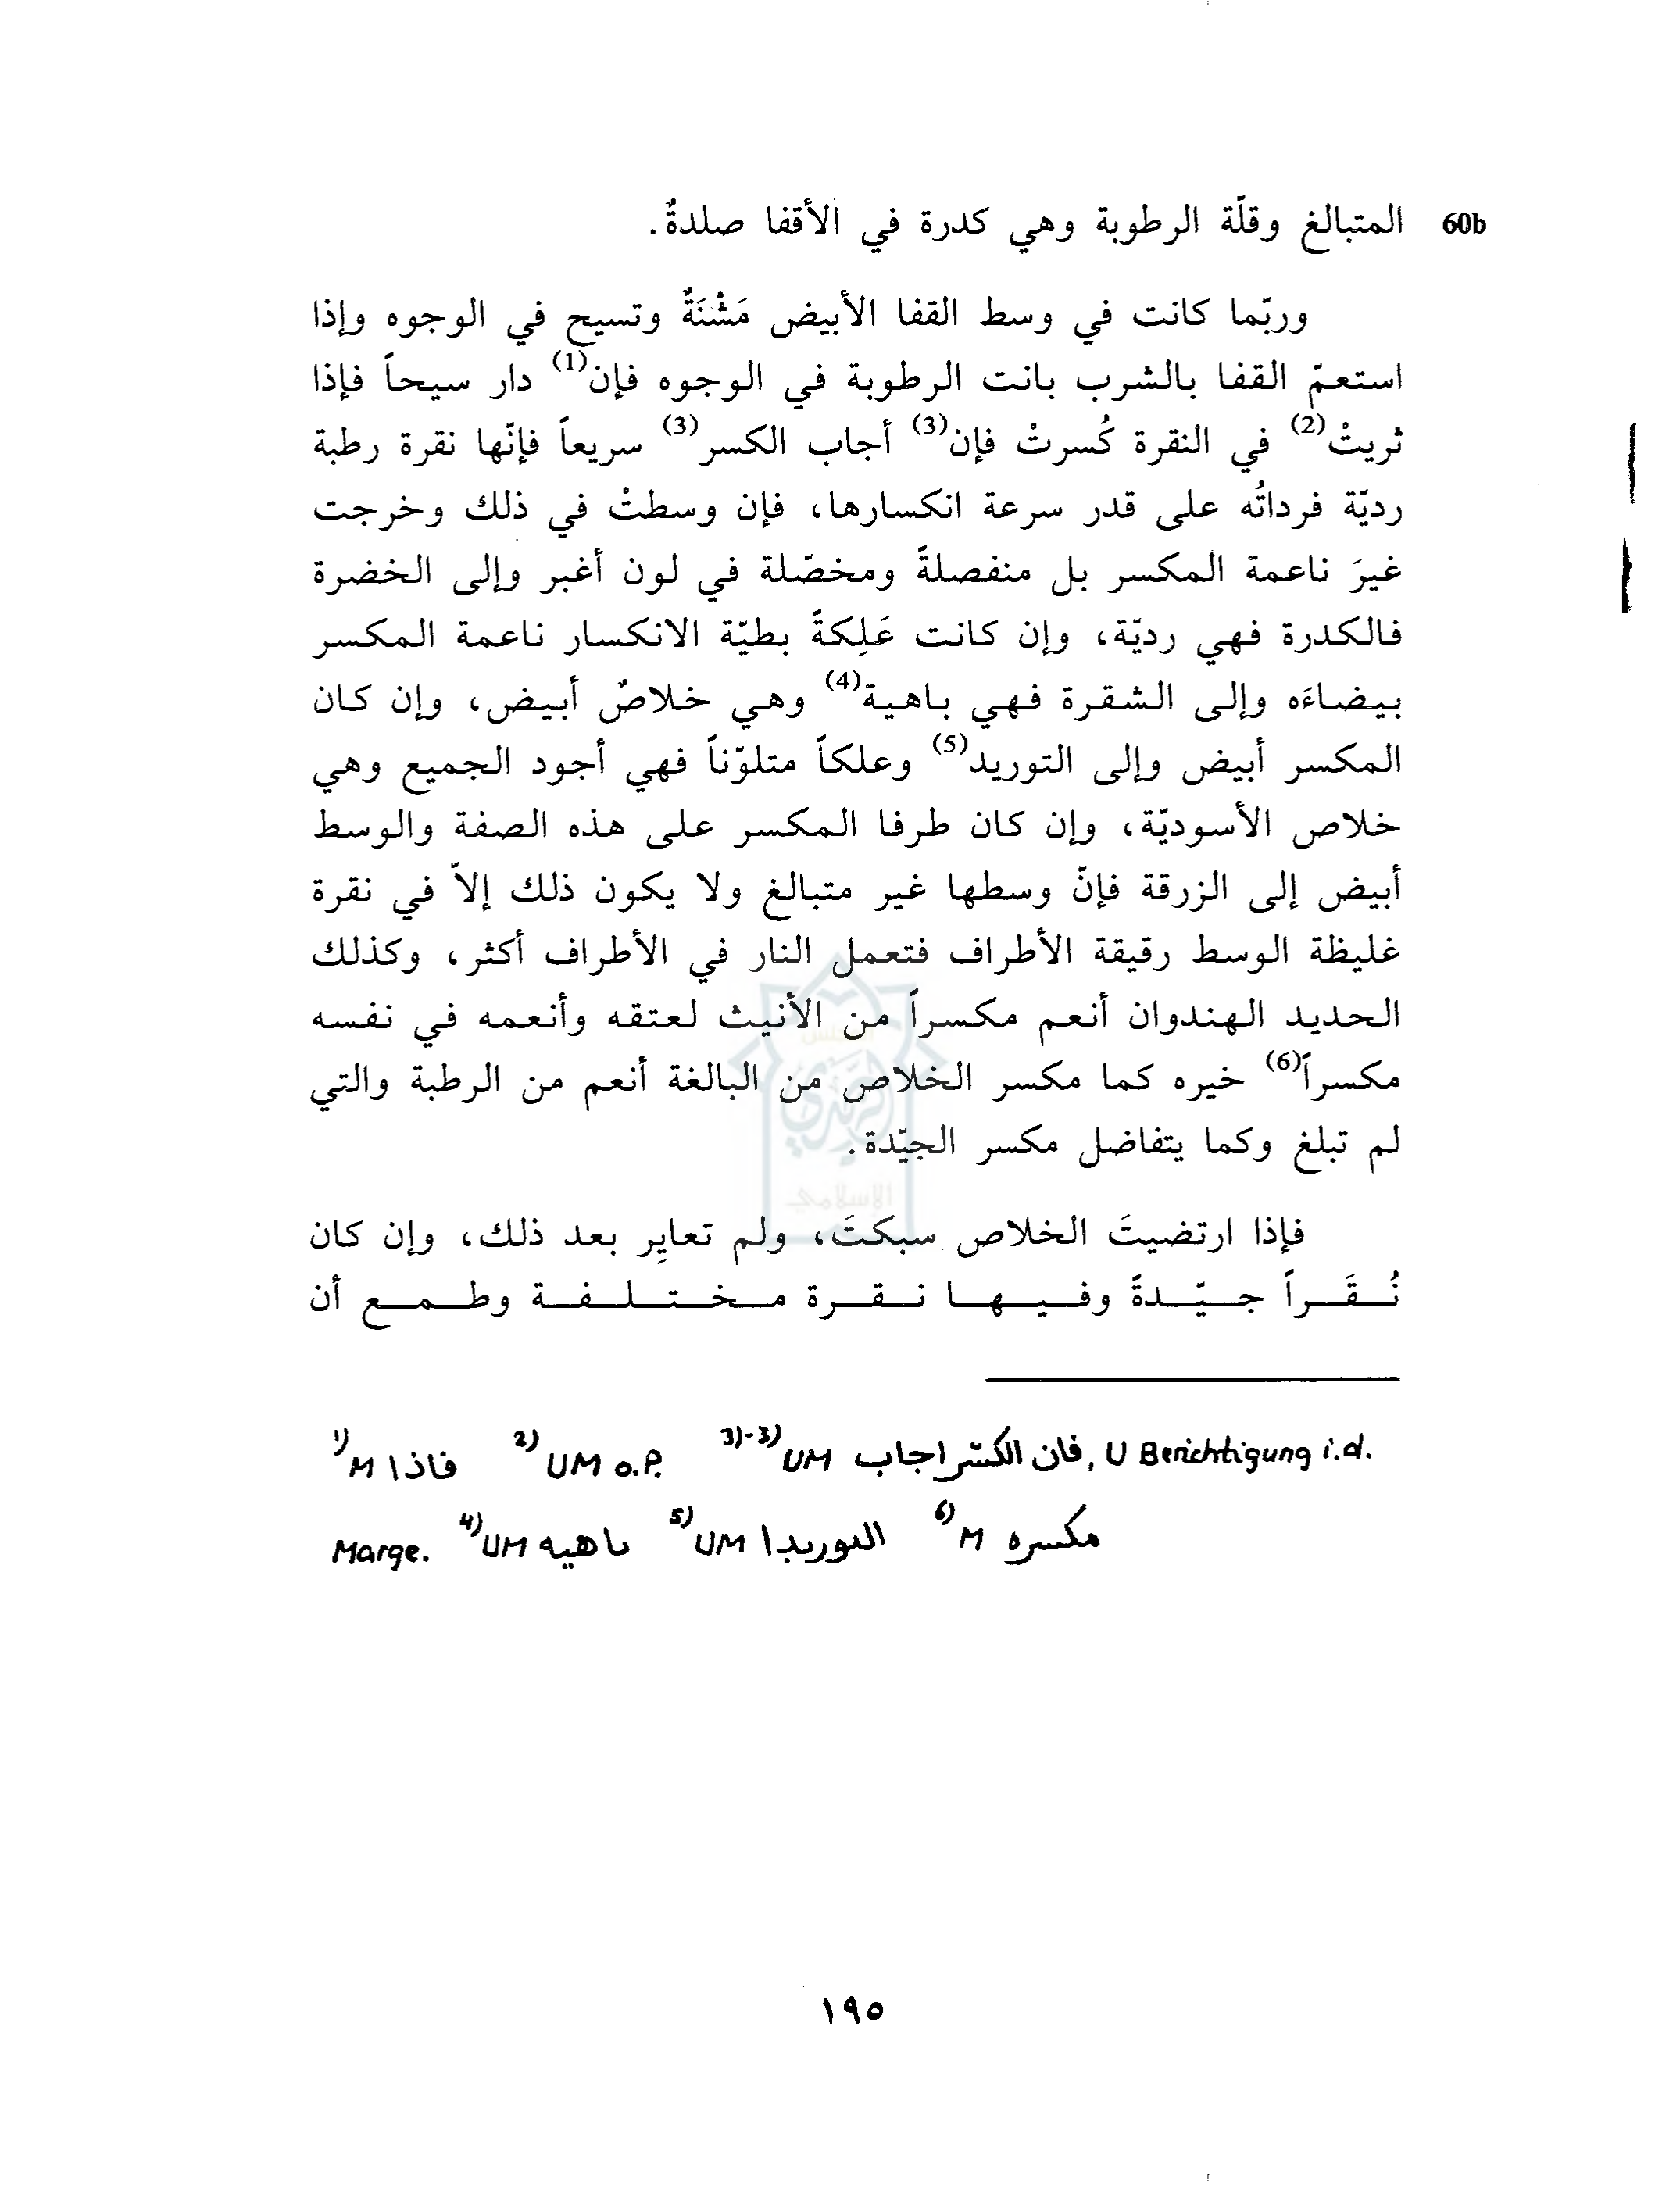 60b المتبالغ وقلّة الرطوبة وهي كدرة في الأقفا صلدةٌ.
وربّما كانت في وسط القفا الأبيض مَشْنَةٌ وتسيح في الوجوه وإذا
استعمّ القفا بالشرب بانت الرطوبة في الوجوه فإن(1) دار سيحاً فإذا
ثريتْ(2) في النقرة كُسرتْ فإن(3) أجاب الكسر(3) سريعاً فإنّها نقرة رطبة
رديّة فرداتُه على قدر سرعة انكسارها، فإن وسطتْ في ذلك وخرجت
غيرَ ناعمة المكسر بل منفصلةً ومخصّلة في لون أغبر وإلى الخضرة
فالكدرة فهي رديّة، وإن كانت عَلِكةً بطيّة الانكسار ناعمة المكسر
بيضاءَه وإلى الشقرة فهي باهية(4) وهي خلاصٌ أبيض، وإن كان
المكسر أبيض وإلى التوريد(5) وعلكاً متلوّناً فهي أجود الجميع وهي
خلاص الأسوديّة، وإن كان طرفا المكسر على هذه الصفة والوسط
أبيض إلى الزرقة فإنّ وسطها غير متبالغ ولا يكون ذلك إلاّ في نقرة
غليظة الوسط رقيقة الأطراف فتعمل النار في الأطراف أكثر، وكذلك
الحديد الهندوان أنعم مكسراً من الأنيث لعتقه وأنعمه في نفسه
مكسراً(6) خيره كما مكسر الخلاص من البالغة أنعم من الرطبة والتي
لم تبلغ وكما يتفاضل مكسر الجيّدة.
فإذا ارتضيتَ الخلاص سبكتَ، ولم تعايِر بعد ذلك، وإن كان
نُقَراً جيّدةً وفيها نقرة مختلفة وطمع أن
1) M فاذا 2) UM o.P. 3)-3) UM فان الكسر اجاب, U Berichtigung i.d.
Marge. 4) UM ٮاهيه 5) UM الٮوريدا 6) M مكسره
١٩٥